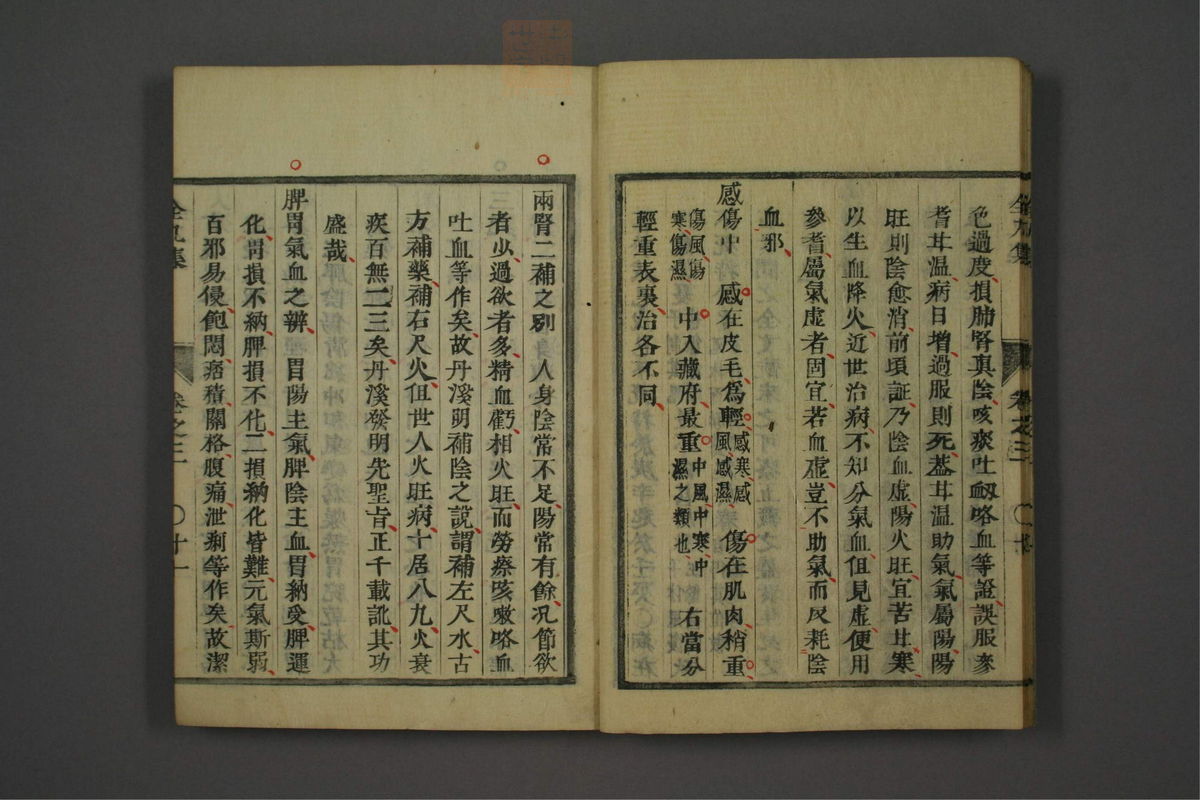 色過度損肺腎真陰咳痰吐衂咯血等證誤服參
耆甘温病日增過服則死蓋甘温助氣氣屬陽陽
旺則陰愈消前頃証乃陰血虚陽火旺宜苦甘寒
以生血降火近世治病不知分氣血但見虚便用
參耆屬氣虚者固宜若血虚豈不助氣而反耗陰
血邪
感傷中 感在皮毛爲輕感寒感風感濕 傷在肌肉稍重
傷風傷寒傷濕 中入臓府最重中風中寒中濕之類也 右當分
輕重表裏治各不同
卷之三
十
兩腎二補之別 人身陰常不足陽常有餘况節欲
者少過欲者多精血虧相火旺而勞瘵咳嗽咯血
吐血等作矣故丹溪明補陰之說謂補左尺水古
方補藥補右尺火伹世人火旺病十居八九火衰
疾百無二三矣丹溪發明先聖旨正千載訛其功
盛哉
脾胃氣血之辨 胃陽主氣脾陰主血胃納受脾運
化胃損不納脾損不化二損納化皆難元氣斯弱
百邪易侵飽悶痞積關格腹痛泄痢等作矣故潔
全九集
卷之三
十一